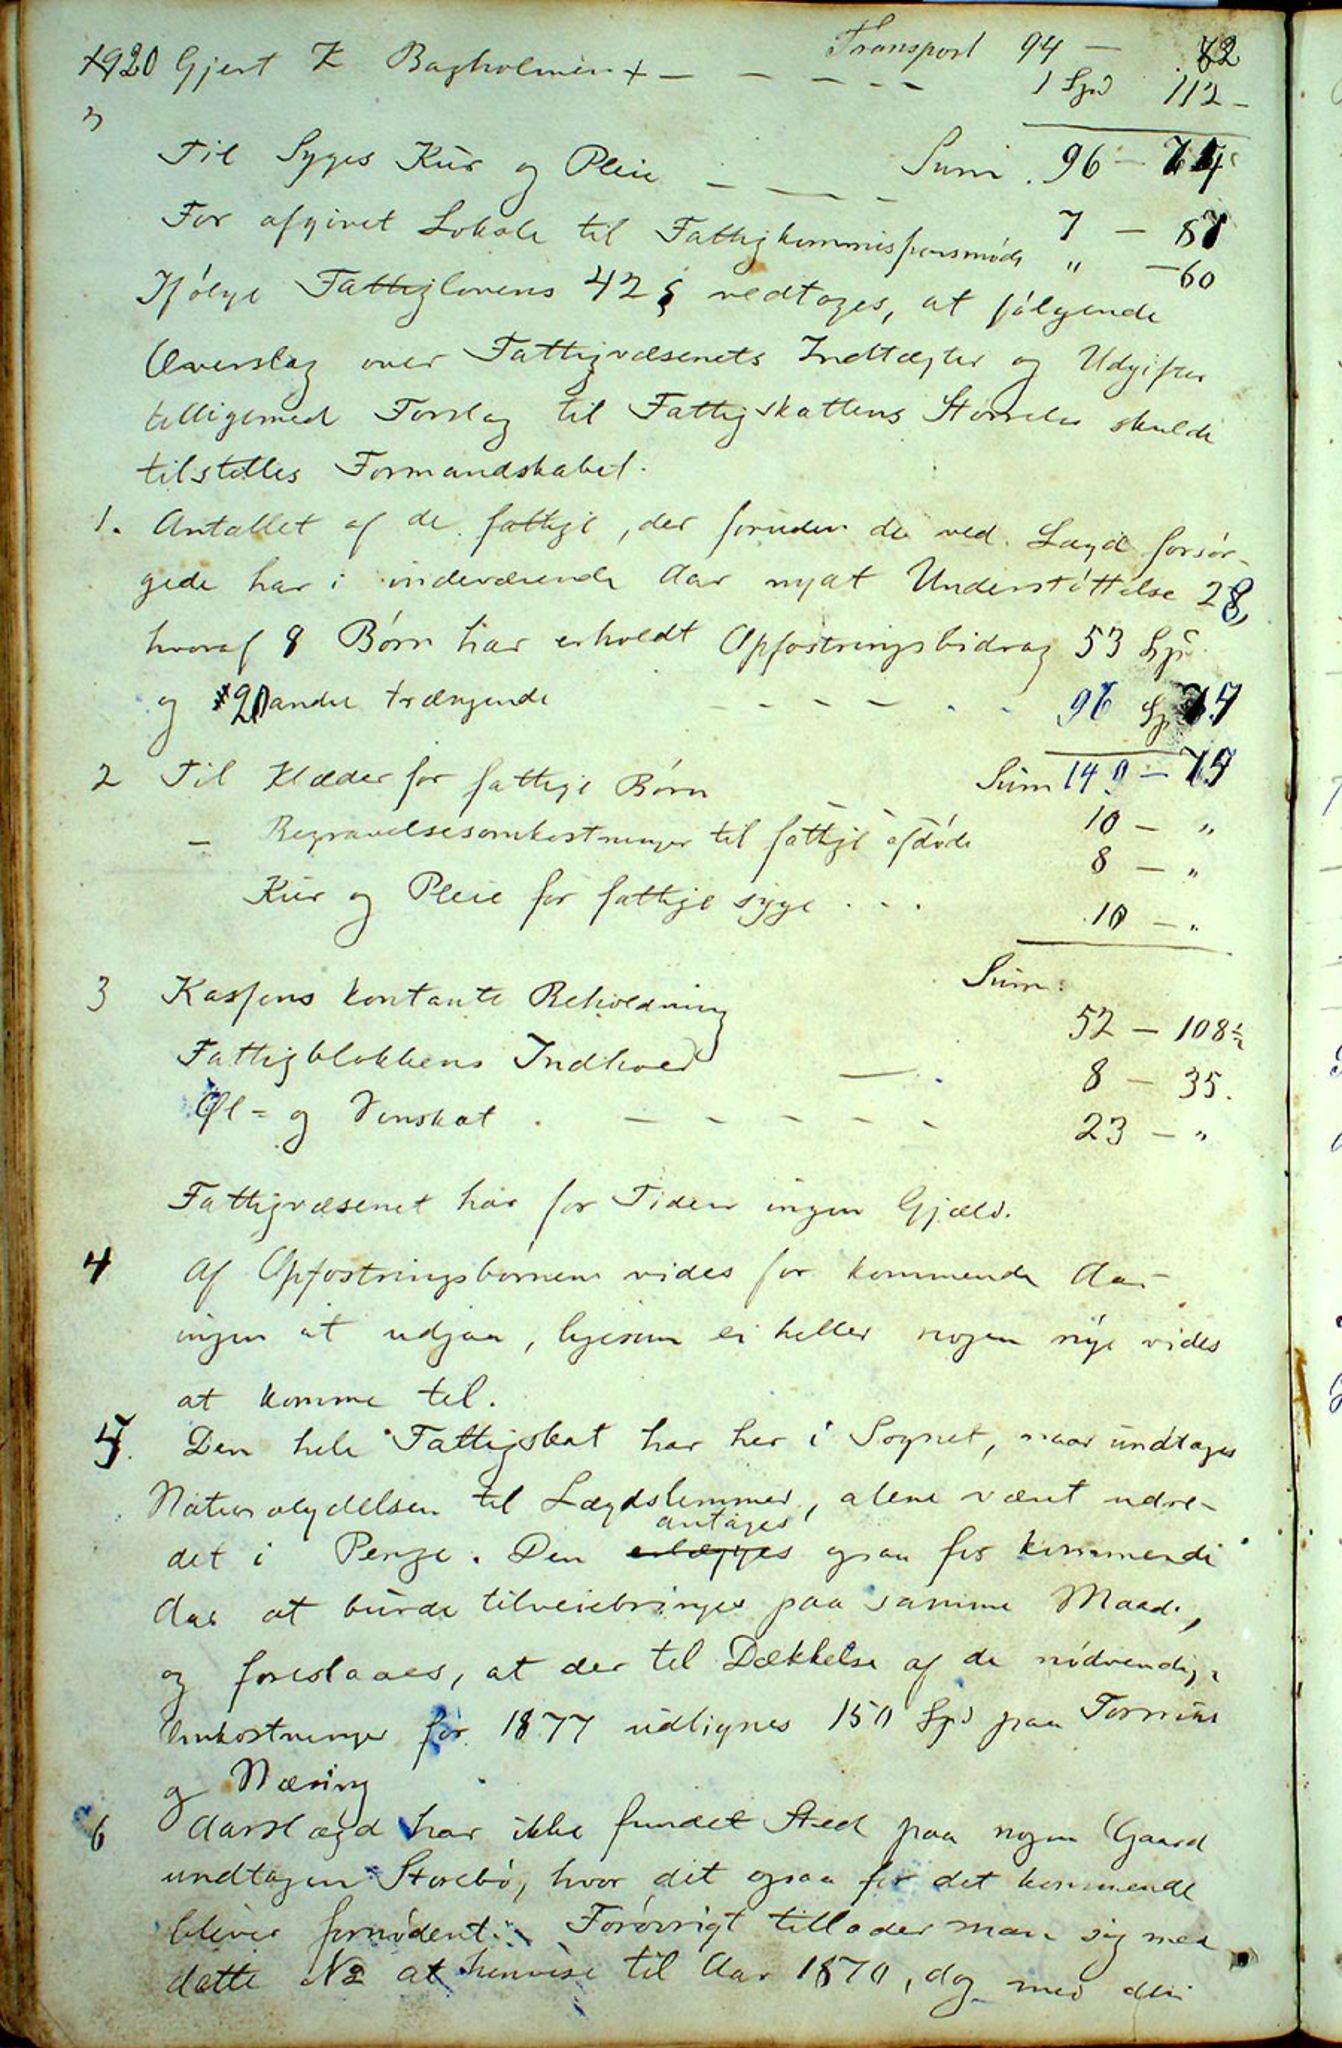 Transport 94 — 72
1920 Gjert K Bagholmen + — — — — — 1 Spd 112 —
Sum. 96 — 74
3
Til Syges Kur og Pleie — — — 7 — 87
For afgivet Lokale til Fattigkommissionsmøde " — 60
Ifølge Fattiglovens 42 § vedtoges, at følgende
Overslag over Fattigvæsenets Indtægter og Udgifter
tilligemed Forslag til Fattigskattens Størrelse skulde
tilstilles Formandskabet.
1. Antallet af de fattige, der foruden de ved Lægd forsør-
gede har i indeværende Aar nydt Understøttelse 28,
hvoraf 8 Børn har erholdt Opfostringsbidrag 53 Spd
og 20 andre trængende — — — — 96 Sp 74
Sum 149 — 74
2 Til Klæder for fattige Børn — — — 10 — "
— Begravelsesomkostninger til fattige afdøde 8 — "
Kur og Pleie for fattige syge . . . 10 — "
Sum:
3 Kassens kontante Beholdning 52 — 108½
Fattigblokkens Indhold — . 8 — 35.
Øl- og Vinskat . — — — — — 23 — "
Fattigvæsenet har for Tiden ingen Gjæld.
4 Af Opfostringsbørnene vides for kommende Aar
ingen at udgaa, ligesom ei heller nogen nye vides
at komme til.
5. Den hele Fattigskat har her i Sognet, naar undtages
Naturalydelsen til Lægdslemmer, alene været udre-
antages
det i Penge. Den erlægges ogsaa for kommende
Aar at burde tilveiebringes paa samme Maade,
og foreslaaes, at der til Dækkelse af de nødvendige
Omkostninger for 1877 udlignes 150 Spd paa Formue
og Næring
6 Aarslægd har ikke fundet Sted paa nogen Gaard
undtagen Storebø, hvor det ogsaa for det kommende
bliver fornødent. Forøvrigt tillader man sig med
dette No at henvise til Aar 1870, dog med den